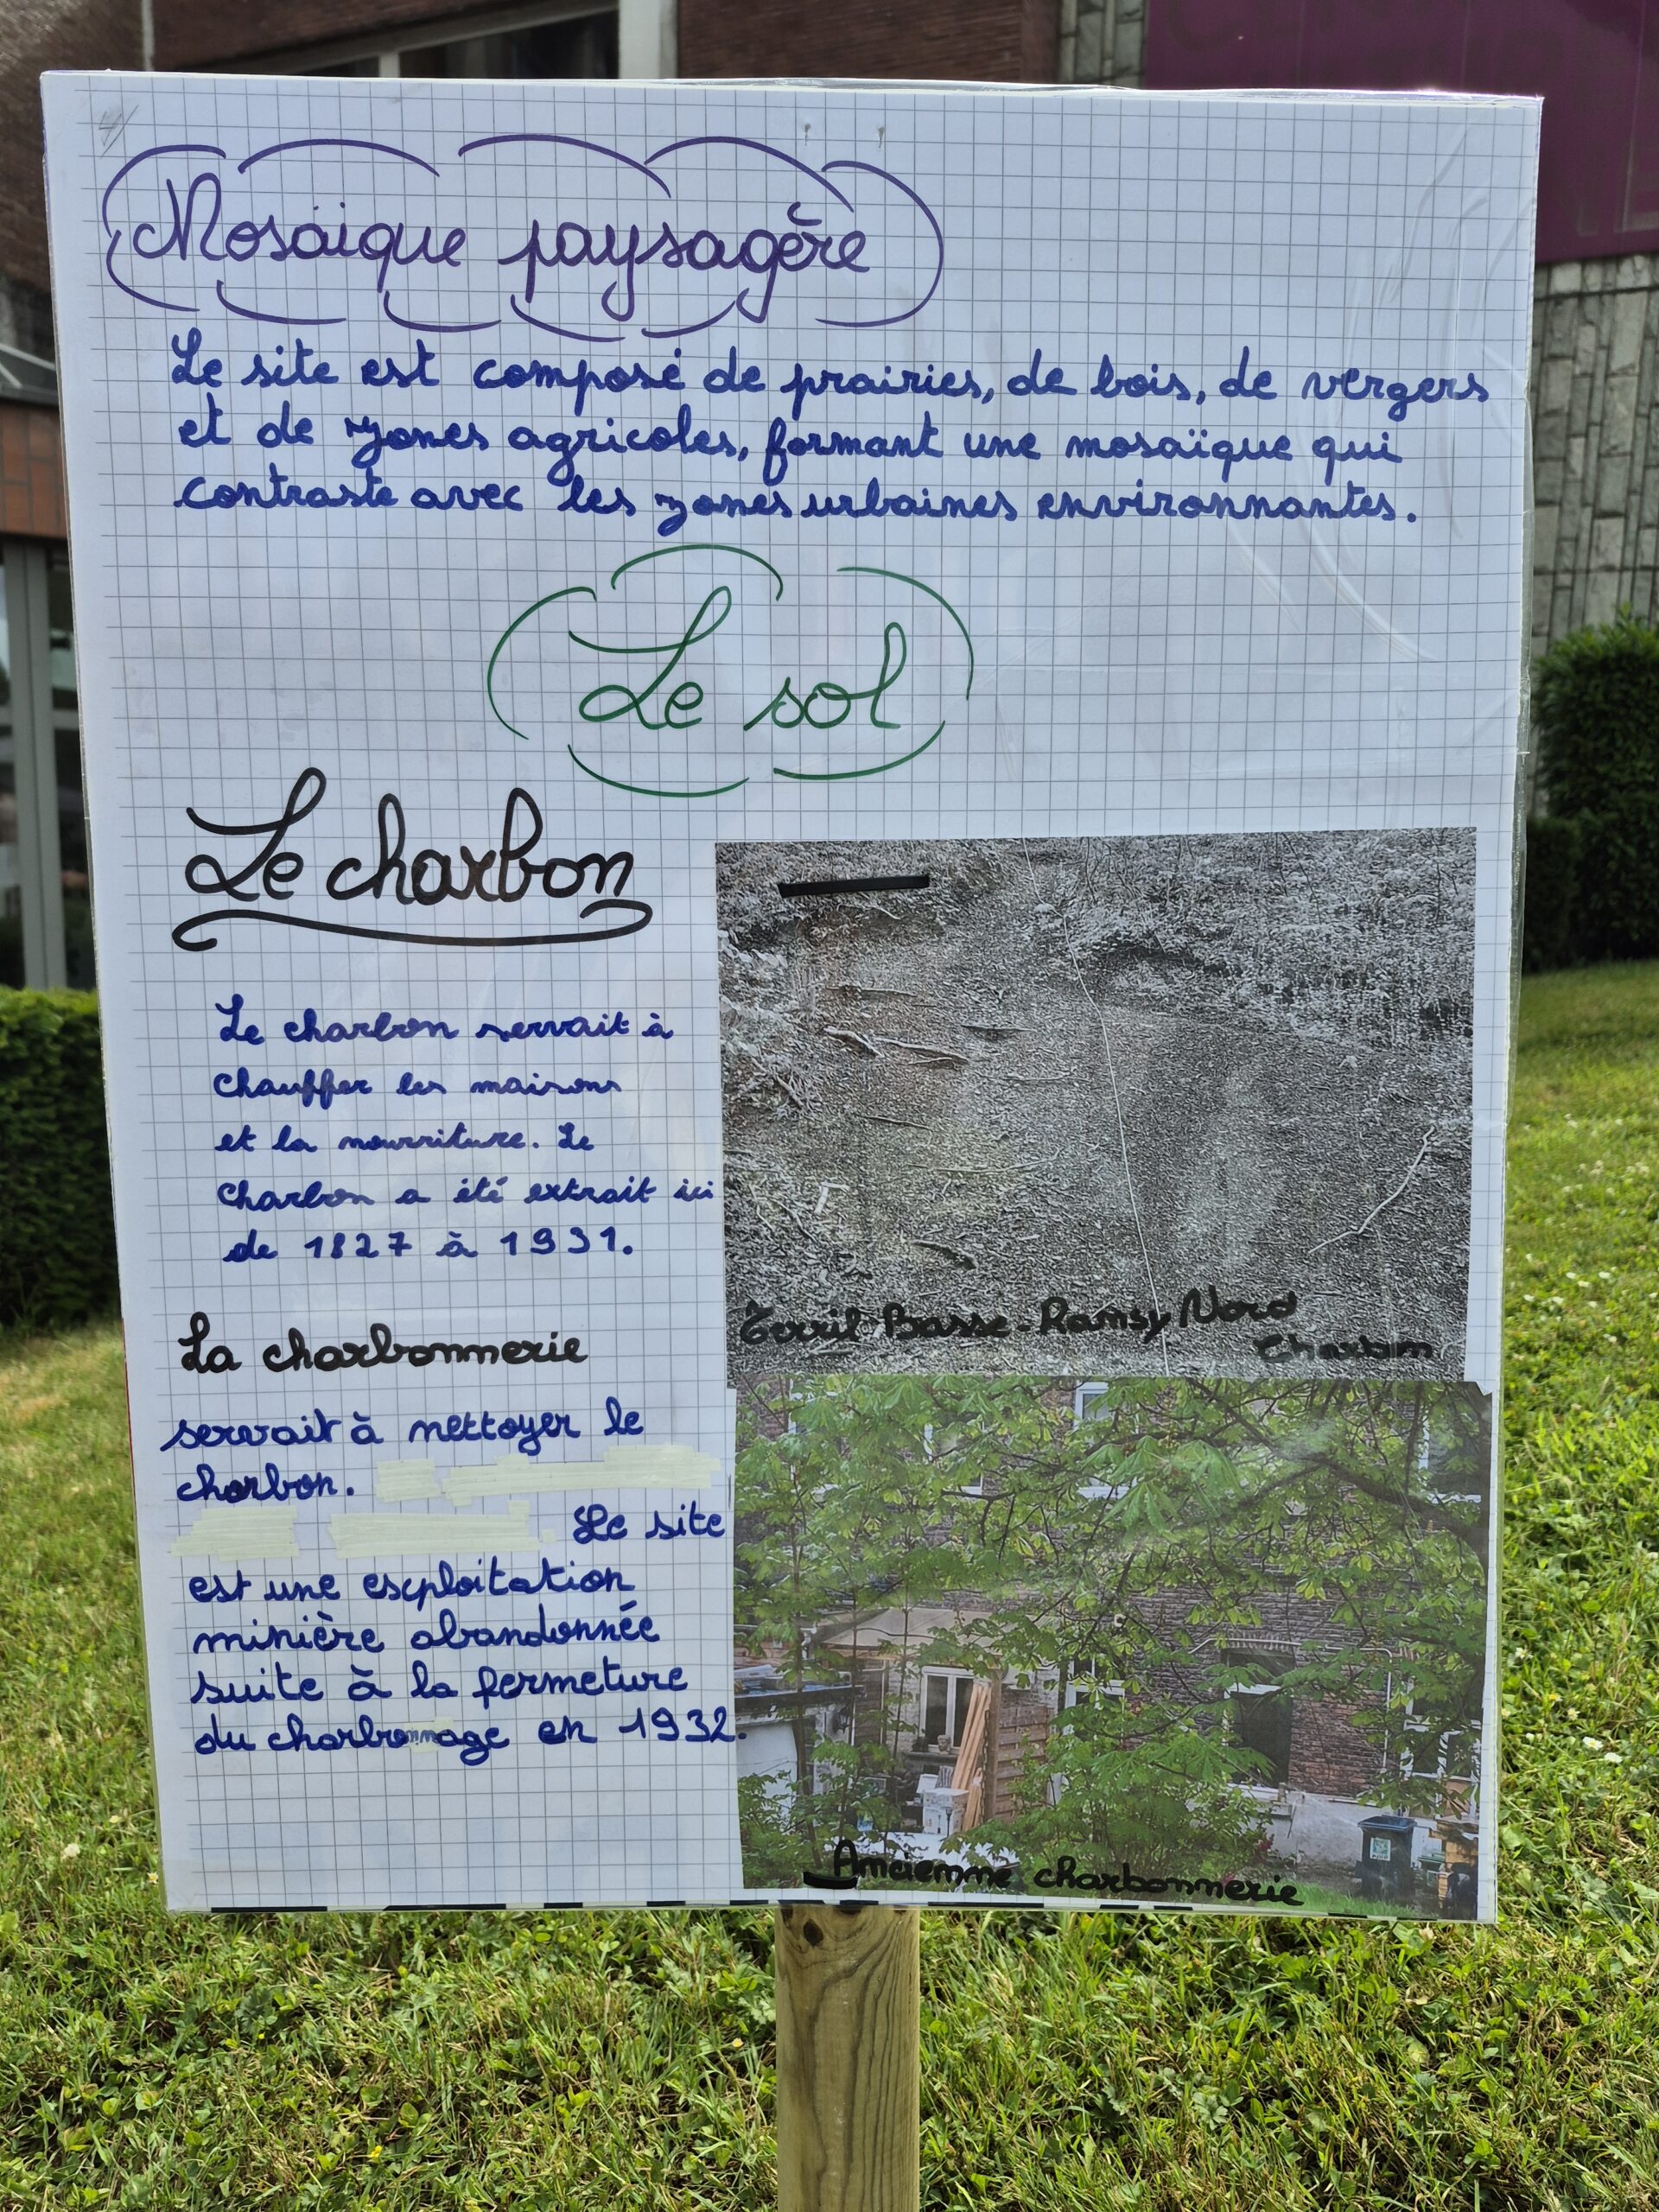 Mosaïque paysagère
Le site est composé de prairies, de bois, de vergers
et de zones agricoles, formant une mosaïque qui
contraste avec les zones urbaines environnantes.
Le sol
Le charbon
Le charbon servait à
chauffer les maisons
et la nourriture. Le
charbon a été extrait ici
de 1827 à 1931.
Terril Basse-Ransy Nord
Charbon
La charbonnerie
servait à nettoyer le
charbon.
Le site
est une exploitation
minière abandonnée
suite à la fermeture
du charbonnage en 1932.
Ancienne charbonnerie